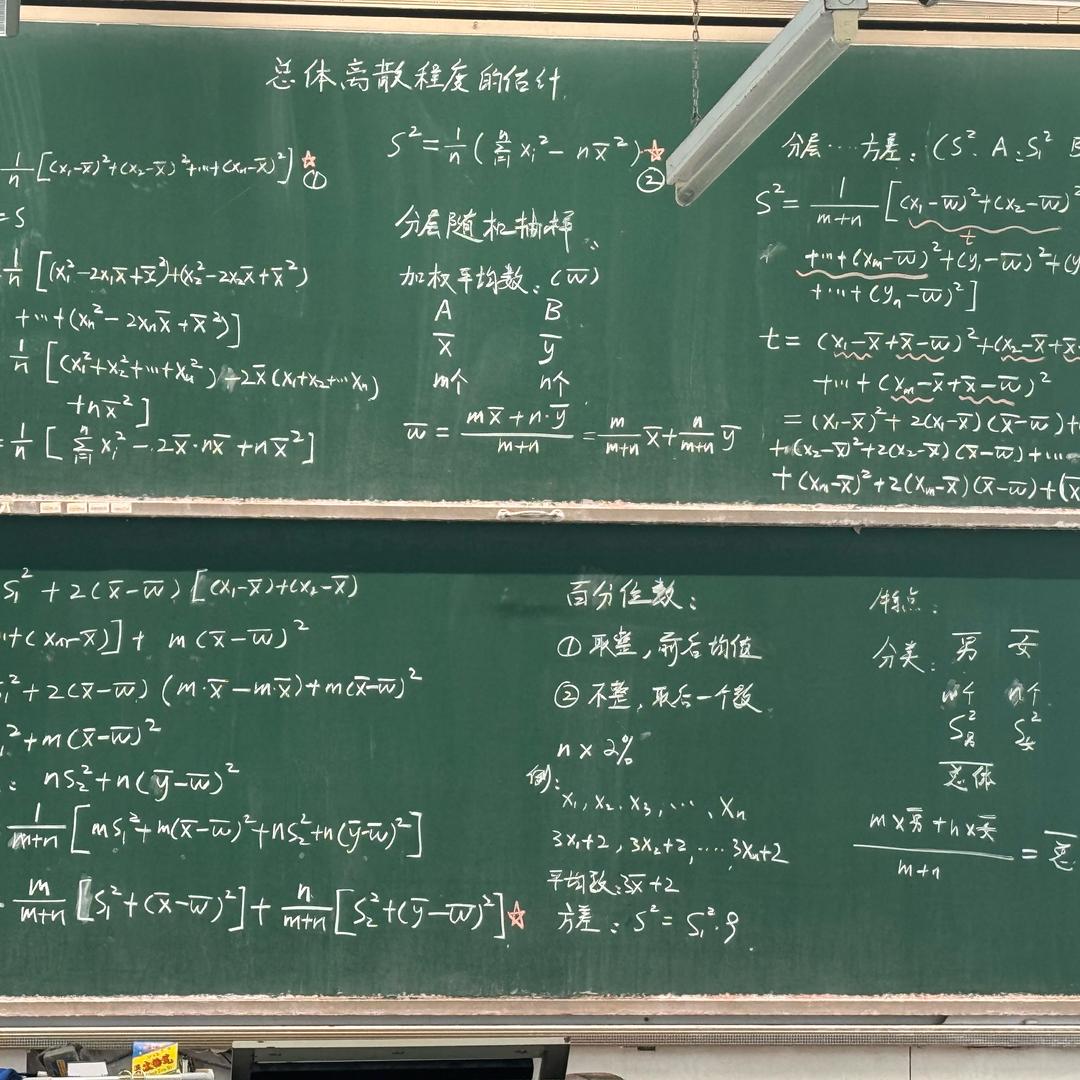 总体离散程度的估计
1/n [(x₁-x̄)²+(x₂-x̄)²+…+(xₙ-x̄)²] ☆ ①
=S
1/n [(x₁²-2x₁x̄+x̄²)+(x₂²-2x₂x̄+x̄²)
+…+(xₙ²-2xₙx̄+x̄²)]
1/n [(x₁²+x₂²+…+xₙ²)-2x̄(x₁+x₂+…xₙ)
+nx̄²]
=1/n [∑ⁿᵢ₌₁ xᵢ²-2x̄·nx̄+nx̄²]
S²=1/n(∑ⁿᵢ₌₁ xᵢ²-nx̄²) ☆ ②
分层随机抽样
加权平均数:(w̄)
A B
x̄ ȳ
m个 n个
w̄=(mx̄+n·ȳ)/(m+n)=m/(m+n) x̄+n/(m+n) ȳ
分层…方差:(S². A:S₁² B
S²=1/(m+n) [(x₁-w̄)²+(x₂-w̄)²
t
+…+(xₘ-w̄)²+(y₁-w̄)²+(y
+…+(yₙ-w̄)²]
t=(x₁-x̄+x̄-w̄)²+(x₂-x̄+x̄-
+…+(xₘ-x̄+x̄-w̄)²
=(x₁-x̄)²+2(x₁-x̄)(x̄-w̄)+
+(x₂-x̄)²+2(x₂-x̄)(x̄-w̄)+…
+(xₘ-x̄)²+2(xₘ-x̄)(x̄-w̄)+(x̄
S₁²+2(x̄-w̄)[(x₁-x̄)+(x₂-x̄)
+(xₘ-x̄)]+m(x̄-w̄)²
₁²+2(x̄-w̄)(m·x̄-m·x̄)+m(x̄-w̄)²
²+m(x̄-w̄)²
: nS₂²+n(ȳ-w̄)²
1/(m+n) [mS₁²+m(x̄-w̄)²+nS₂²+n(ȳ-w̄)²]
m/(m+n) [S₁²+(x̄-w̄)²]+n/(m+n) [S₂²+(ȳ-w̄)²] ☆
百分位数:
① 取整,前后均值
② 不整,取后一个数
n×2%
例:
x₁,x₂,x₃,…,xₙ
3x₁+2,3x₂+2,…3xₙ+2
平均数:3x̄+2
方差:S²=S₁²·9.
特点:
分类: 男 女
m个 n个
S男² S女²
总体
(m×男+n×女)/(m+n)=总